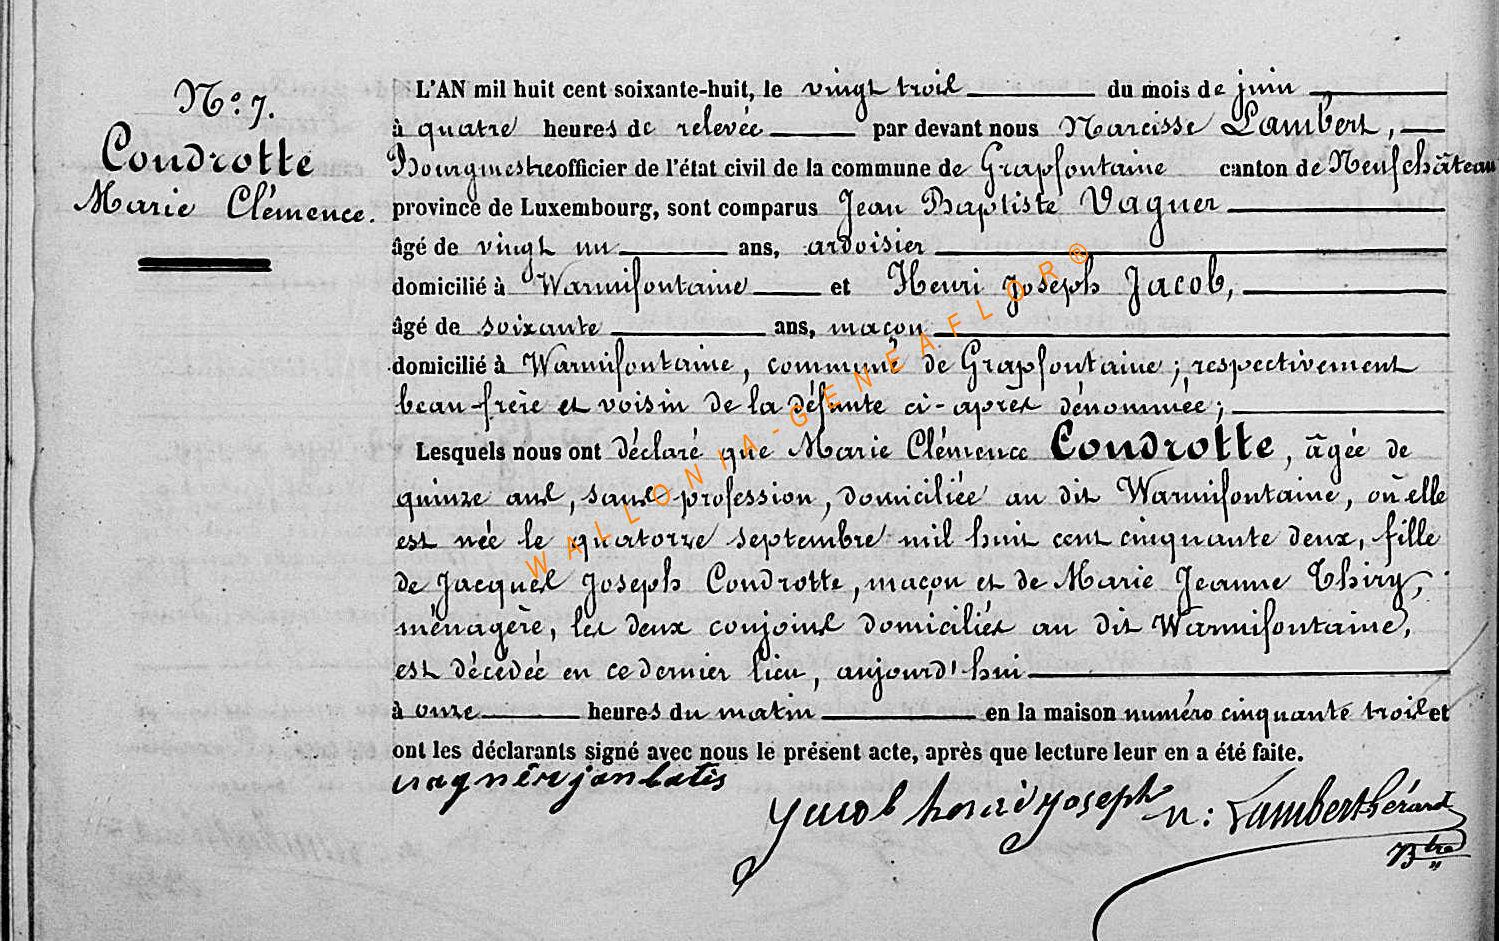 N° 7.
Condrotte
Marie Clémence.
L'AN mil huit cent soixante-huit, le vingt trois du mois de juin
à quatre heures de relevée par devant nous Narcisse Lambert,
Bourgmestre officier de l'état civil de la commune de Grapfontaine canton de Neufchâteau
province de Luxembourg, sont comparus Jean Baptiste Vaguer
âgé de vingt un ans, ardoisier
domicilié à Warmifontaine et Henri Joseph Jacob,
âgé de soixante ans, maçon
domicilié à Warmifontaine, commune de Grapfontaine ; respectivement
beau-frère et voisin de la défunte ci-après dénommée ;
Lesquels nous ont déclaré que Marie Clémence Condrotte, âgée de
quinze ans, sans profession, domiciliée au dit Warmifontaine, où elle
est née le quatorze septembre mil huit cent cinquante deux, fille
de Jacques Joseph Condrotte, maçon et de Marie Jeanne Thiry,
ménagère, les deux conjoins domiciliés au dit Warmifontaine,
est décédée en ce dernier lieu, aujourd'hui
à onze heures du matin en la maison numéro cinquante trois et
ont les déclarants signé avec nous le présent acte, après que lecture leur en a été faite.
vagnêr jan batis
Jacob henri Joseph n: Lambert hérard
Btre
WALLONIA-GENEAFLOR®